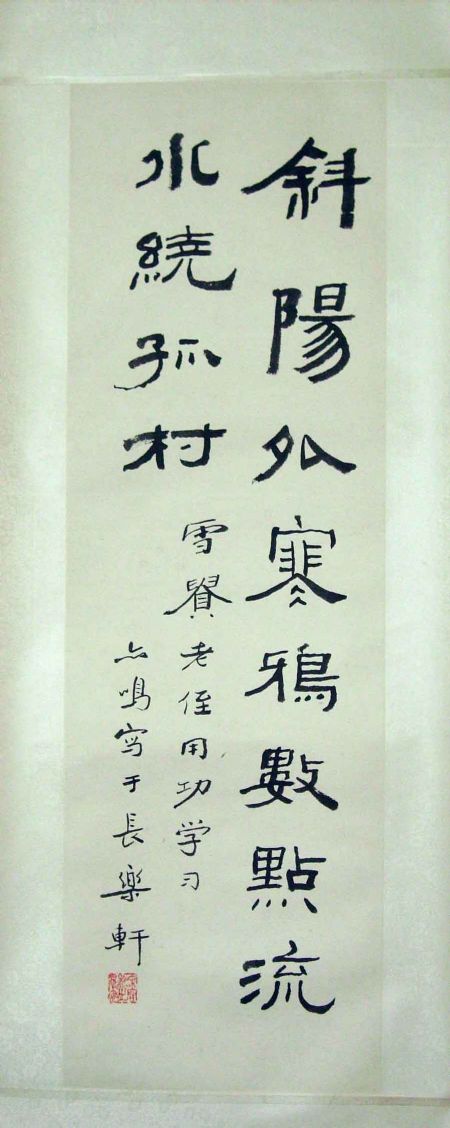 斜陽外寒鴉數點流
水繞孤村
雪賢老侄用功学习
鳴写于長樂軒